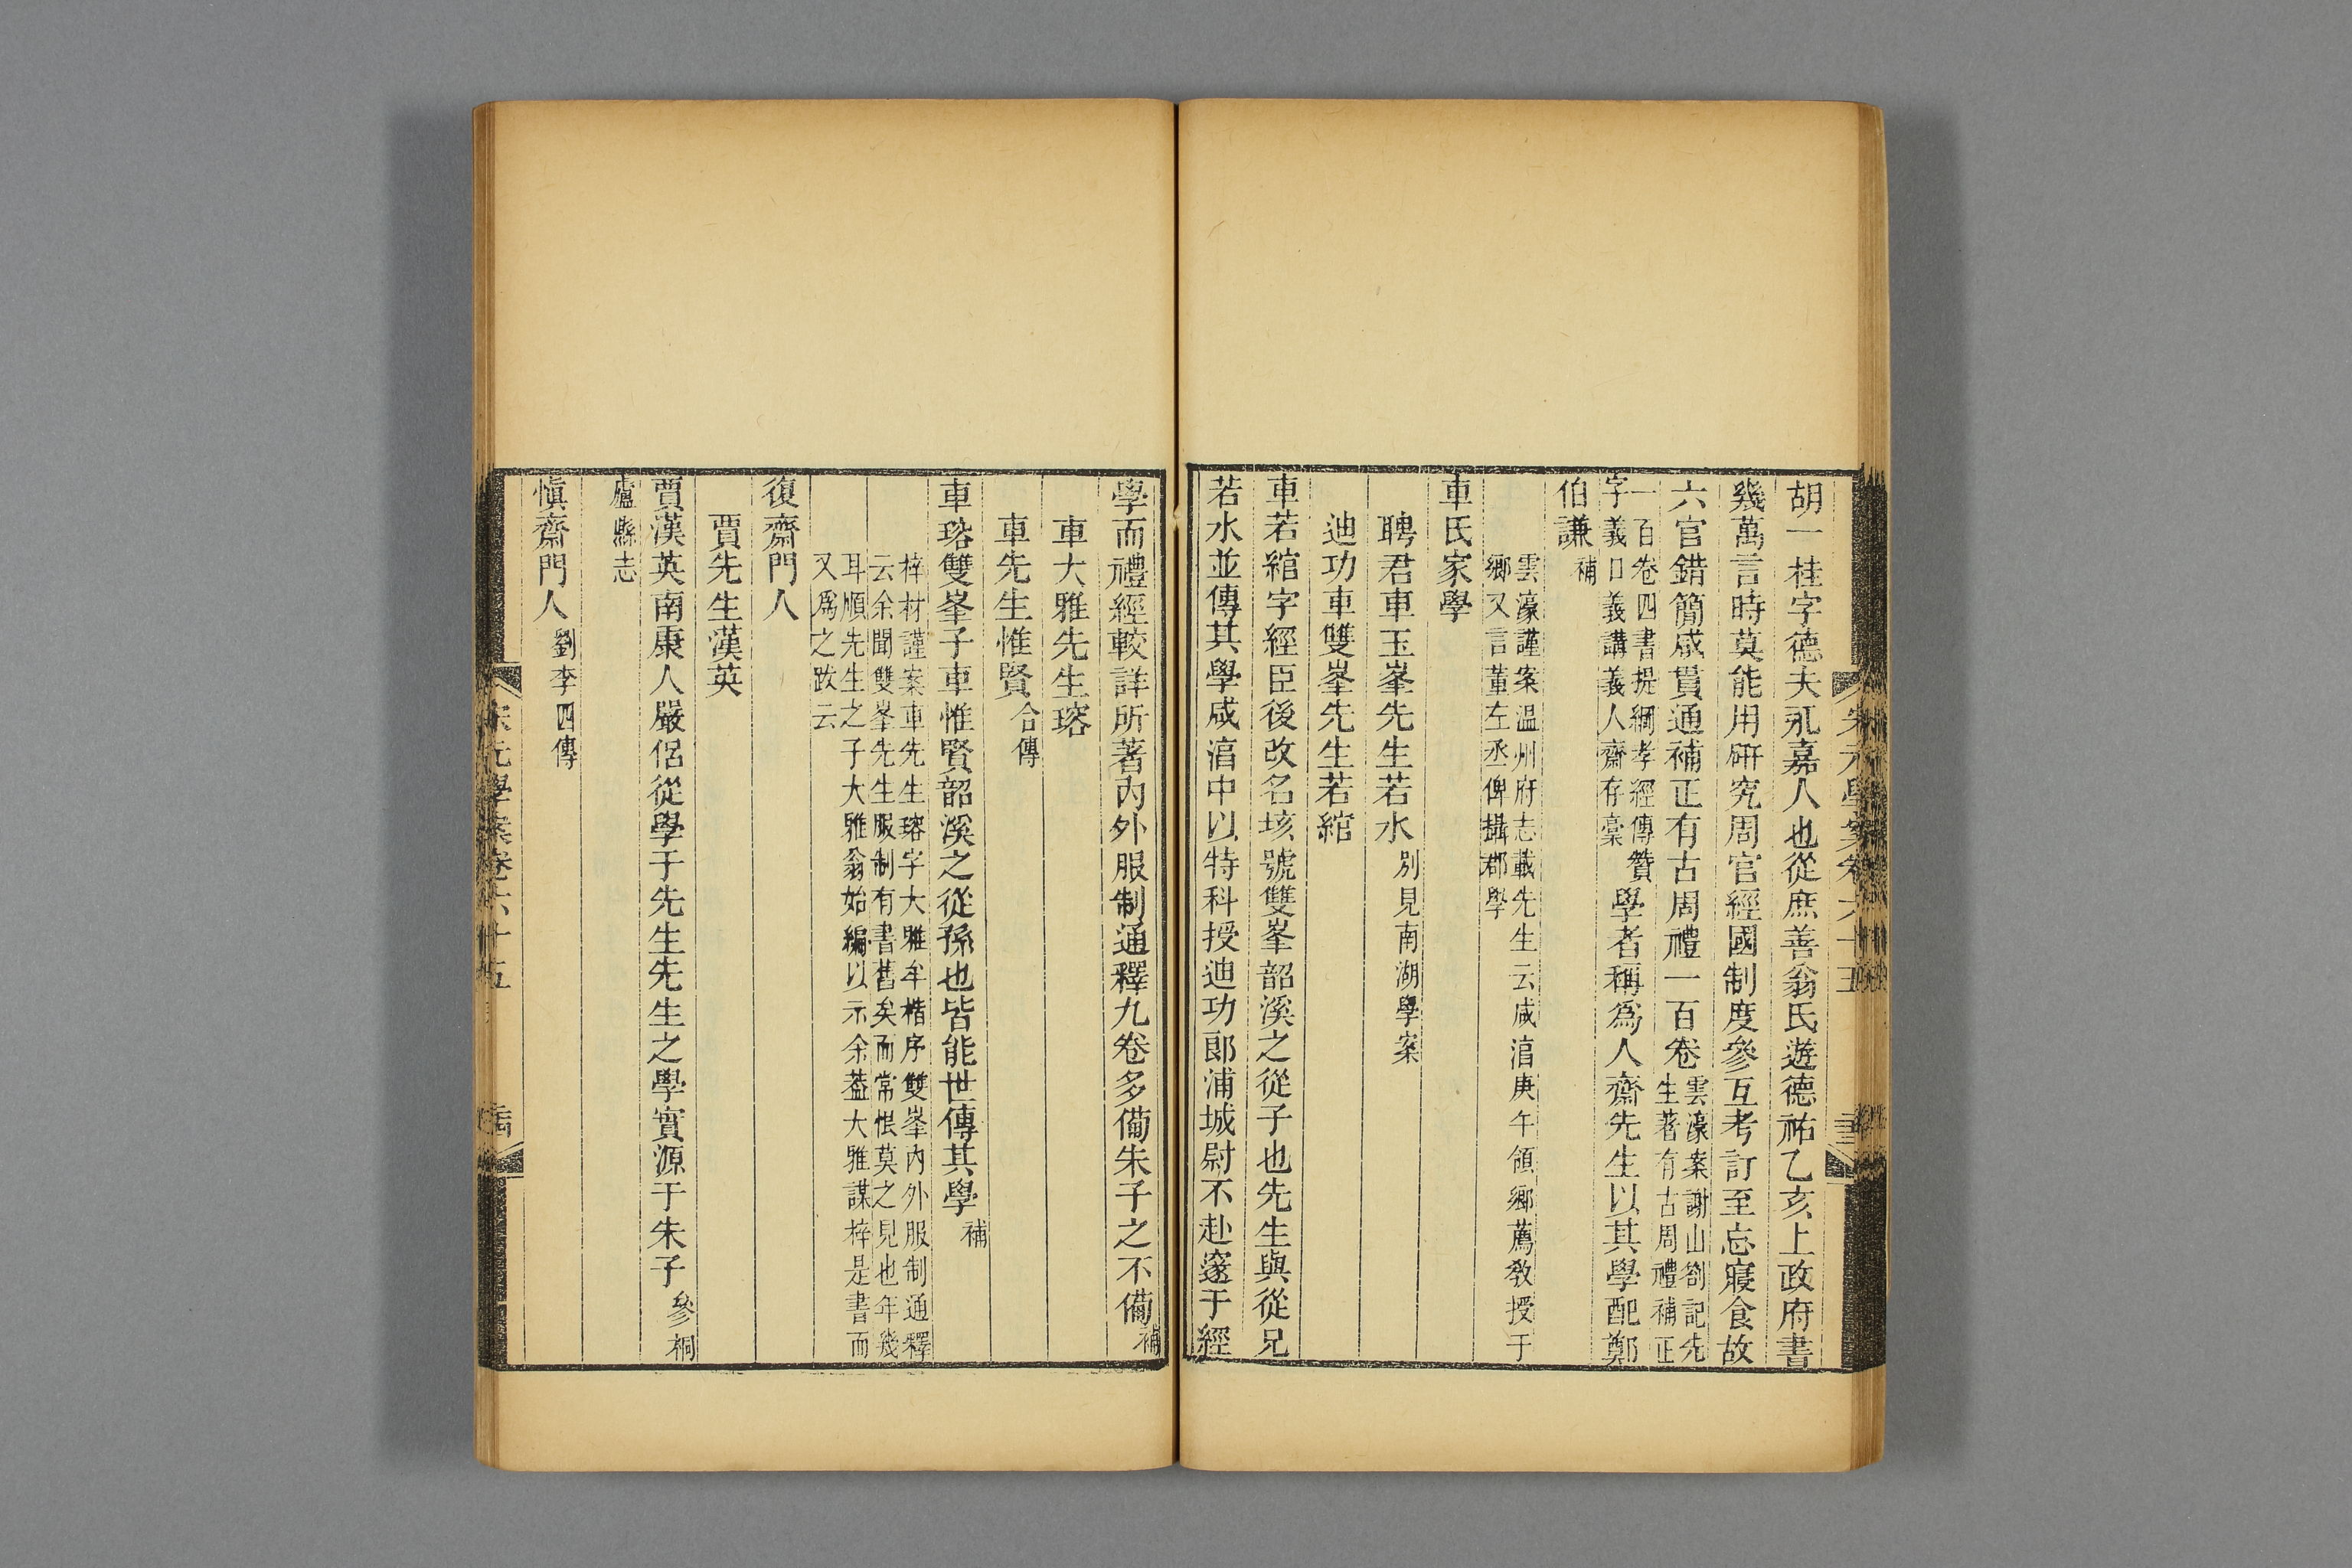 胡一桂字德夫永嘉人也從庶善翁氏遊德祐乙亥上政府書
幾萬言時莫能用研究周官經國制度參互考訂至忘寢食故
六官錯簡咸貫通補正有古周禮一百卷雲濠案謝山劄記先
生著有古周禮補正
一百卷四書提綱孝經傳贊
字義口義講義人齋存稾學者稱爲人齋先生以其學配鄭
伯謙補
雲濠謹案温州府志載先生云咸淳庚午領鄉薦教授于
鄉又言董左丞俾攝郡學
車氏家學
聘君車玉峯先生若水別見南湖學案
迪功車雙峯先生若綰
車若綰字經臣後改名垓號雙峯韶溪之從子也先生與從兄
若水並傳其學咸淳中以特科授迪功郎浦城尉不赴邃于經
學而禮經較詳所著內外服制通釋九卷多備朱子之不備補
車大雅先生瑢
車先生惟賢合傳
車瑢雙峯子車惟賢韶溪之從孫也皆能世傳其學補
梓材謹案車先生瑢字大雅牟楷序雙峯內外服制通釋
云余聞雙峯先生服制有書舊矣而常恨莫之見也年幾
耳順先生之子大雅翁始編以示余葢大雅謀梓是書而
又爲之跋云
復齋門人
賈先生漢英
賈漢英南康人嚴侶從學于先生先生之學實源于朱子參桐
廬縣志
愼齋門人劉李四傳
宋元學案卷六十五